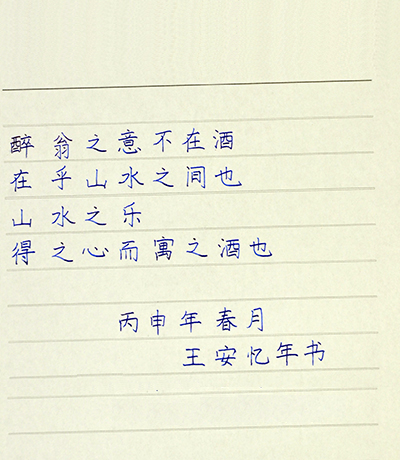 醉翁之意不在酒
在乎山水之间也
山水之乐
得之心而寓之酒也
丙申年春月
王安忆年书